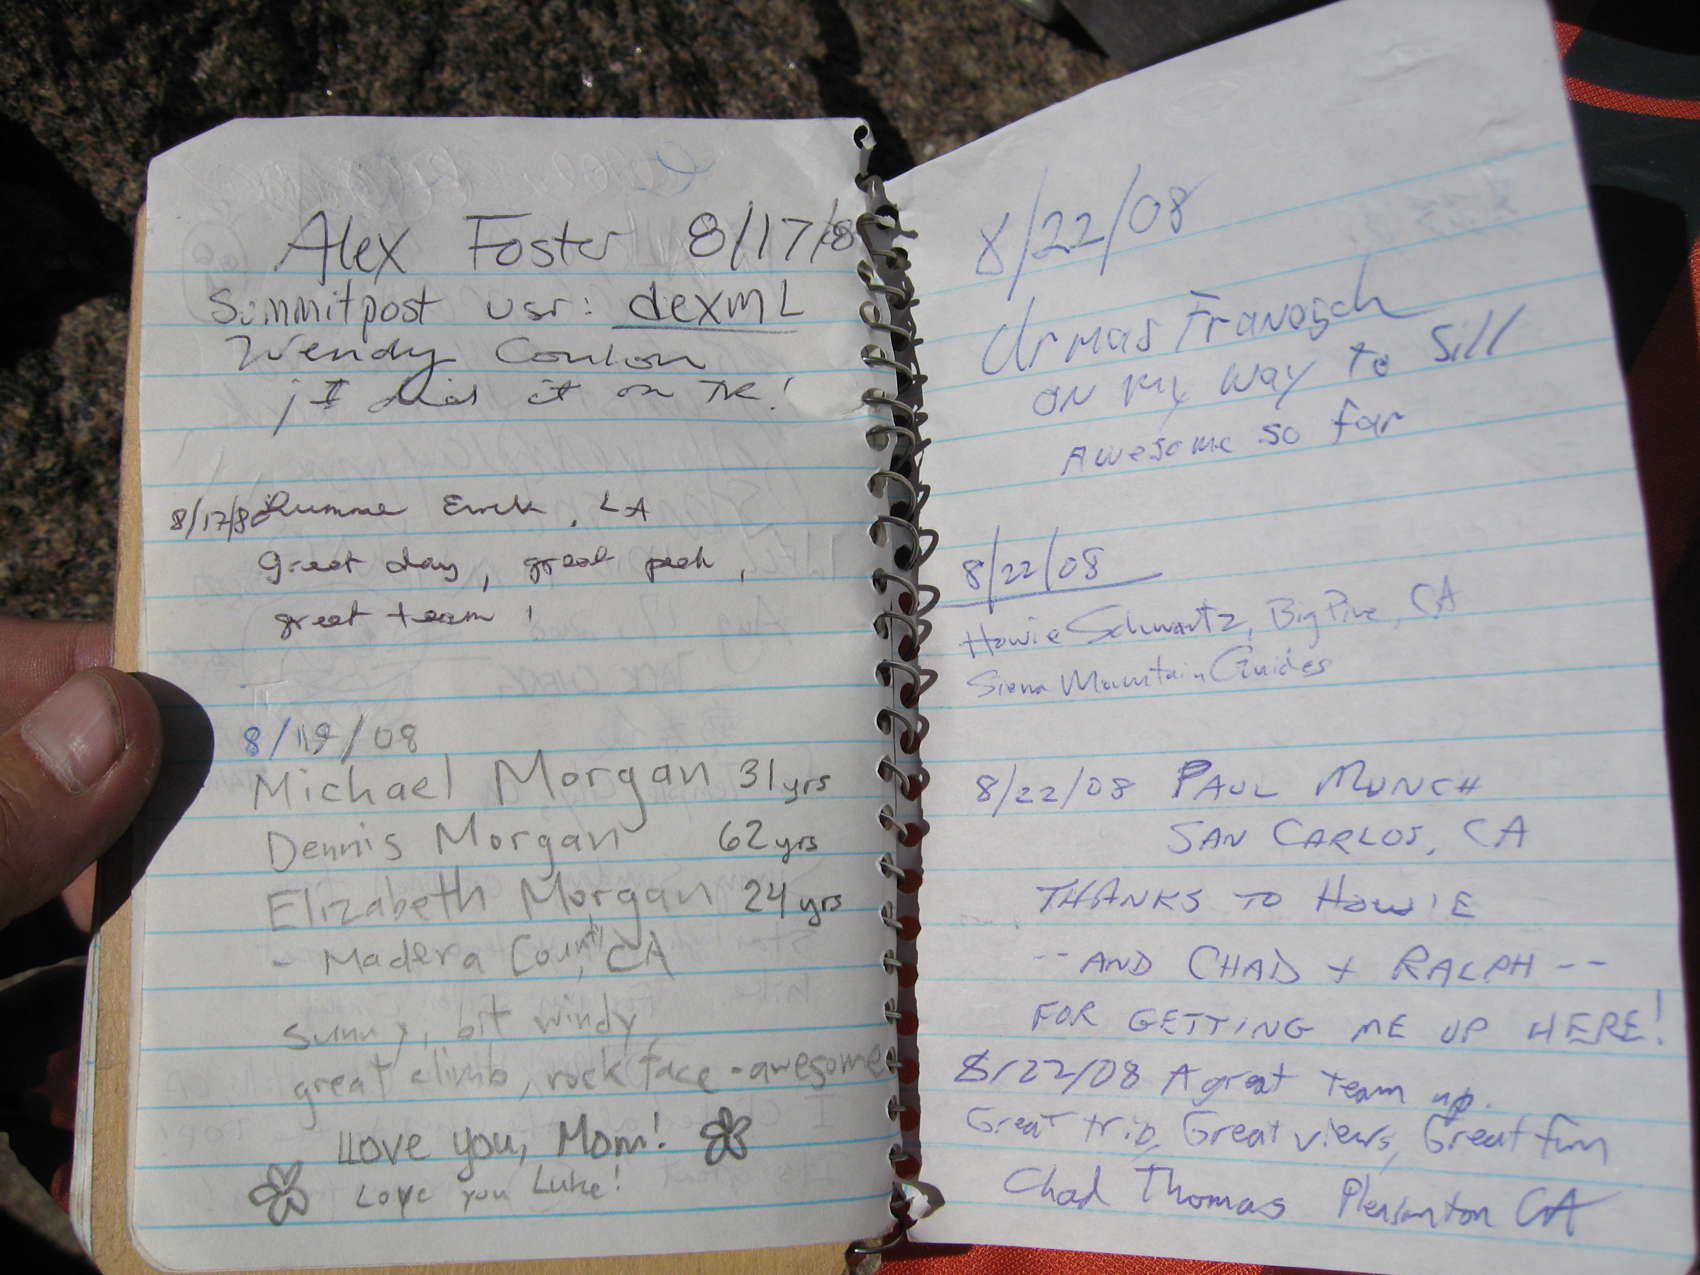 Alex Foster 8/17/8
Summitpost usr: dexmL
Wendy
¡I did it on TR!
8/17/80 LA
Great day, great peak,
great team!
8/19/08
Michael Morgan 31 yrs
Dennis Morgan 62 yrs
Elizabeth Morgan 24 yrs
- Madera County, CA
sunny, bit windy
great climb, rock face - awesome
Love you, Mom!
Love you Luke!
8/22/08
Urmas Franosch
on my way to Sill
Awesome so far
8/22/08
Howie Schwartz, Big Pine, CA
Sierra Mountain Guides
8/22/08 PAUL MUNCH
SAN CARLOS, CA
THANKS TO HOWIE
-- AND CHAD + RALPH --
FOR GETTING ME UP HERE!
8/22/08 A great team up.
Great trip, Great views, Great fun
Chad Thomas Pleasanton CA